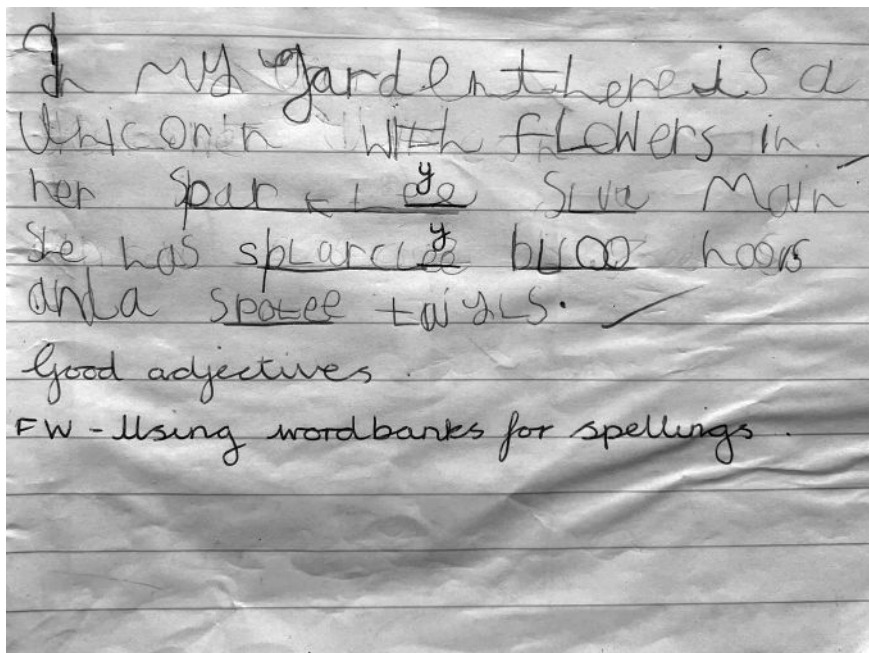 In my garden there is a
Unicorn with flowers in
her sparkley Siva Main
She has splarcley bloo hoovs
and a spotee taiyls.
Good adjectives.
FW - Using wordbanks for spellings.